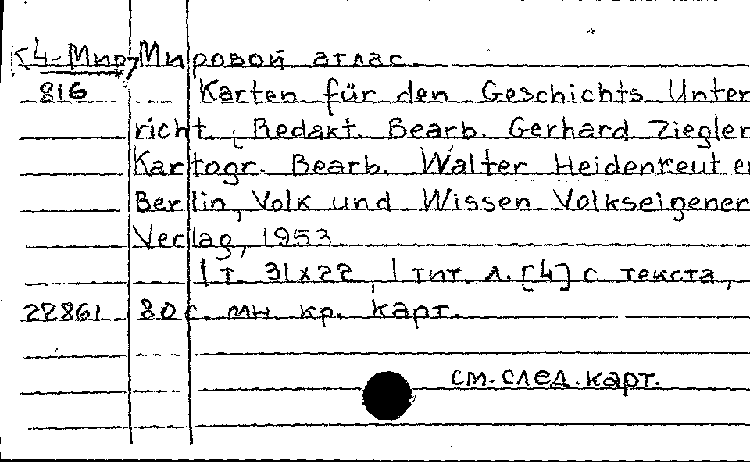 К4-Мир, Мировой атлас.
816 Karten für den Geschichts Unter
richt. Redakt. Bearb. Gerhard Ziegler
Kartogr. Bearb. Walter Heidenreuter
Berlin, Volk und Wissen Volkseigener
Verlag, 1953
1 т. 31x22, 1 тит. л. [4] с текста,
22861 80 с. мн. кр. карт.
см. след. карт.